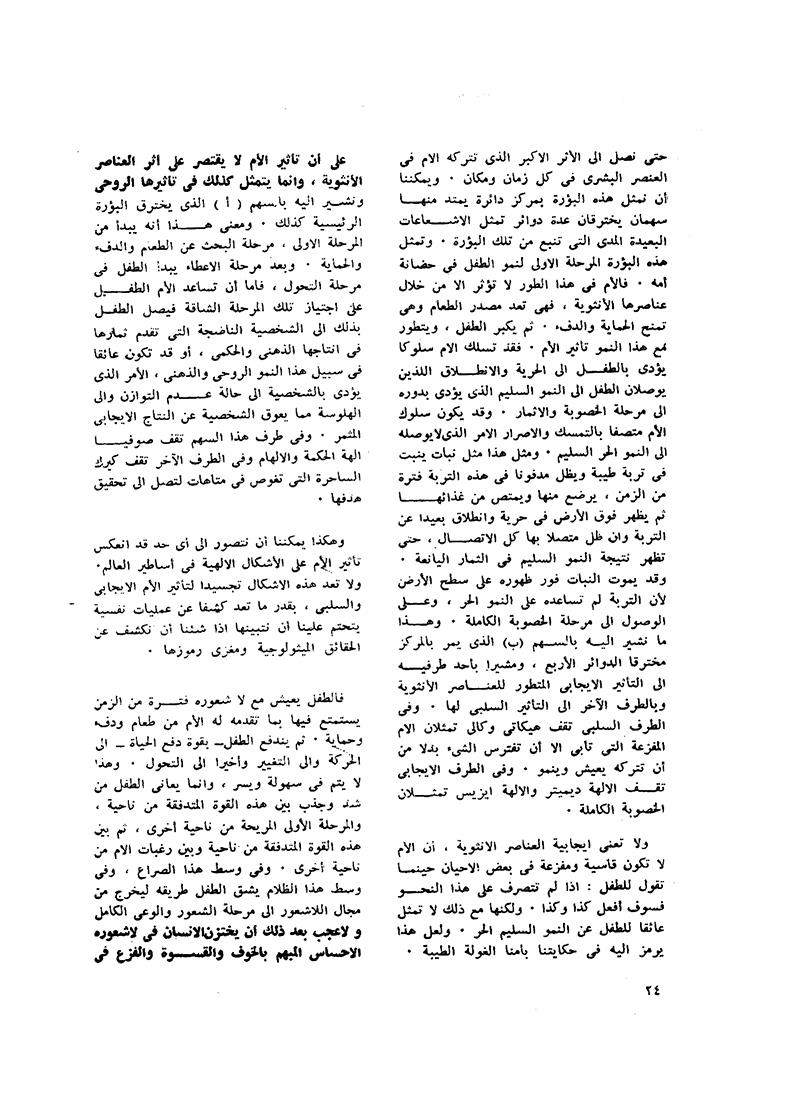 حتى نصل الى الأثر الاكبر الذى تتركه الام فى
العنصر البشرى فى كل زمان ومكان ٠ ويمكننا
أن نمثل هذه البؤرة بمركز دائرة يمتد منهـا
سهمان يخترقان عدة دوائر تمثل الاشـعاعات
البعيدة المدى التى تنبع من تلك البؤرة ٠ وتمثل
هذه البؤرة المرحلة الاولى لنمو الطفل فى حضانة
أمه ٠ فالأم فى هذا الطور لا تؤثر الا من خلال
عناصرها الأنثوية ، فهى تعد مصدر الطعام وهى
تمنح الحماية والدفء ٠ ثم يكبر الطفل ، ويتطور
مع هذا النمو تأثير الأم ٠ فقد تسلك الام سلوكا
يؤدى بالطفـل الى الحرية والانطـلاق اللذين
يوصلان الطفل الى النمو السليم الذى يؤدى بدوره
الى مرحلة الخصوبة والاثمار ٠ وقد يكون سلوك
الأم متصفا بالتمسك والاصرار الامر الذى لايوصله
الى النمو الحر السليم ٠ ومثل هذا مثل نبات ينبت
فى تربة طيبة ويظل مدفونا فى هذه التربة فترة
من الزمن ، يرضع منها ويمتص من غذائهـا
ثم يظهر فوق الأرض فى حرية وانطلاق بعيدا عن
التربة وان ظل متصلا بها كل الاتصـال ، حتى
تظهر نتيجة النمو السليم فى الثمار اليانعة ٠
وقد يموت النبات فور ظهوره على سطح الأرض
لأن التربة لم تساعده على النمو الحر ، وعـلى
الوصول الى مرحلة الخصوبة الكاملة ٠ وهـذا
ما نشير اليـه بالسـهم (ب) الذى يمر بالمركز
مخترقا الدوائر الأربع ، ومشيرا بأحد طرفيـه
الى التأثير الايجابى المتطور للعنـاصر الأنثوية
وبالطرف الآخر الى التأثير السلبى لها ٠ وفى
الطرف السلبى تقف هيكاتى وكالى تمثلان الام
المفزعة التى تأبى الا أن تفترس الشىء بدلا من
أن تتركه يعيش وينمو ٠ وفى الطرف الايجابى
تقـف الالهة ديميتر والالهة ايزيس تمثـلان
الخصوبة الكاملة ٠
ولا تعنى ايجابية العناصر الانثوية ، أن الأم
لا تكون قاسية ومفزعة فى بعض الاحيان حينمـا
تقول للطفل : اذا لم تتصرف على هذا النحـو
فسوف أفعل كذا وكذا ٠ ولكنها مع ذلك لا تمثل
عائقا للطفل عن النمو السليم الحر ٠ ولعل هذا
يرمز اليه فى حكايتنا بأمنا الغولة الطيبة ٠
على أن تأثير الأم لا يقتصر على أثر العناصر
الأنثوية ، وانما يتمثل كذلك فى تأثيرها الروحى
ونشـير اليه بالسهم ( أ ) الذى يخترق البؤرة
الرئيسية كذلك ٠ ومعنى هـذا أنه يبدأ من
المرحلة الاولى ، مرحلة البحث عن الطعام والدفء
والحماية ٠ وبعد مرحلة الاعطاء يبدأ الطفل فى
مرحلة التحول ، فاما أن تساعد الأم الطفـل
على اجتياز تلك المرحلة الشاقة فيصل الطفـل
بذلك الى الشخصية الناضجة التى تقدم ثمارها
فى انتاجها الذهنى والحكمى ، أو قد تكون عائقا
فى سبيل هذا النمو الروحى والذهنى ، الأمر الذى
يؤدى بالشخصية الى حالة عـدم التوازن والى
الهلوسة مما يعوق الشخصية عن النتاج الايجابى
المثمر ٠ وفى طرف هذا السهم تقف صوفيـا
الهة الحكمة والالهام وفى الطرف الآخر تقف كيرك
الساحرة التى تغوص فى متاهات لتصل الى تحقيق
هدفها ٠
وهكذا يمكننا أن نتصور الى أى حد قد انعكس
تأثير الأم على الأشكال الالهية فى أساطير العالم٠
ولا تعد هذه الاشكال تجسيدا لتأثير الأم الايجابى
والسلبى ، بقدر ما تعد كشفا عن عمليات نفسية
يتحتم علينا أن نتبينها اذا شئنا أن نكشف عن
الحقائق الميثولوجية ومغزى رموزها ٠
فالطفل يعيش مع لا شعوره فتـرة من الزمن
يستمتع فيها بما تقدمه له الأم من طعام ودفء
وحماية ٠ ثم يندفع الطفل ـ بقوة دفع الحياة ـ الى
الحركة والى التغيير وأخيرا الى التحول ٠ وهذا
لا يتم فى سهولة ويسر ، وانما يعانى الطفل من
شد وجذب بين هذه القوة المتدفقة من ناحية ،
والمرحلة الأولى المريحة من ناحية أخرى ، ثم بين
هذه القوة المتدفقة من ناحية وبين رغبات الام من
ناحية أخرى ٠ وفى وسط هذا الصراع ، وفى
وسط هذا الظلام يشق الطفل طريقه ليخرج من
مجال اللاشعور الى مرحلة الشعور والوعى الكامل
و لاعجب بعد ذلك أن يختزن الانسان فى لاشعوره
الاحساس المبهم بالخوف والقسـوة والفزع فى
٢٤